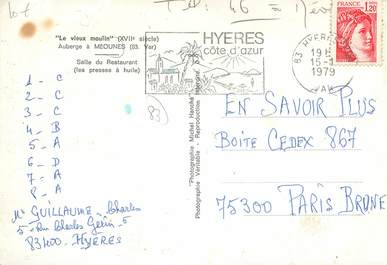 "Le vieux moulin" (XVIIe siècle)
Auberge à MEOUNES (83. Var)
Salle du Restaurant
(les presses à huile)
1 - C
2 - C
3 - C
4 - B
5 - A
6 - D
7 - A
8 - A
Mr GUILLAUME - Charles
5 - Rue Charles Gerin - 5
83400 - HYERES
(83)
HYERES
côte d'azur
83 HYERES
19 H
15-1
1979
VAR
1,20
"Photographie Michel Hancké"
Photographie Véritable - Reproduction
EN SAVOIR PLUS
BOITE CEDEX 867
75300 PARIS BRUNE